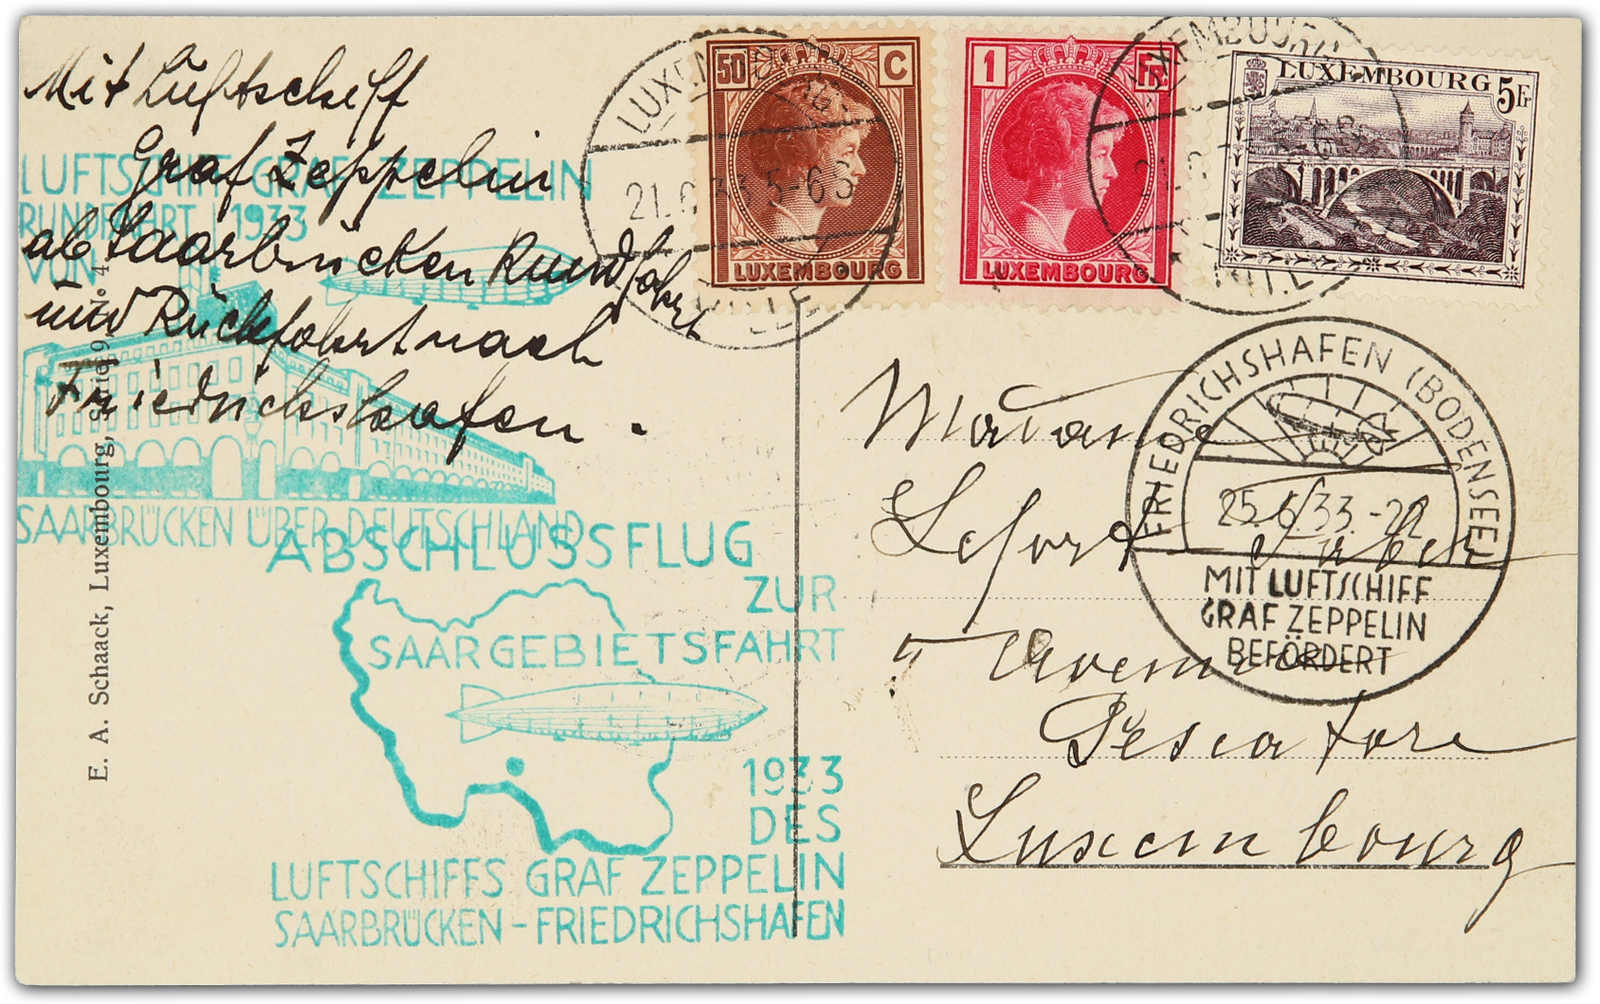 Mit Luftschiff
Graf Zeppelin
ab Saarbrücken Rundfahrt
und Rückfahrt nach
Friedrichshafen.
LUFTSCHIFF GRAF ZEPPELIN
RUNDFAHRT 1933
VON
SAARBRÜCKEN ÜBER DEUTSCHLAND
ABSCHLUSSFLUG
ZUR
SAARGEBIETSFAHRT
1933
DES
LUFTSCHIFFS GRAF ZEPPELIN
SAARBRÜCKEN - FRIEDRICHSHAFEN
E. A. Schaack, Luxembourg, Série 9, No 4
50 C
LUXEMBOURG
1 Fr
LUXEMBOURG
LUXEMBOURG
5 Fr
LUXEMBOURG
21.6.33.5-6S
VILLE
LUXEMBOURG
21.6
VILLE
FRIEDRICHSHAFEN (BODENSEE)
25.6.33.-22
MIT LUFTSCHIFF
GRAF ZEPPELIN
BEFÖRDERT
Madame
Lefort
Avenue
Pescatore
Luxembourg